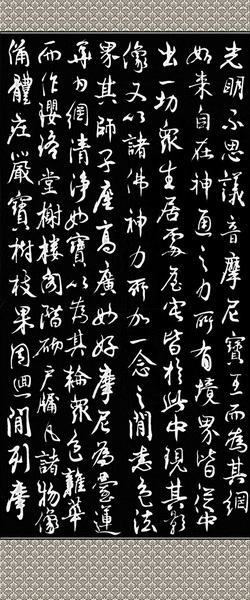 光明不思議音摩尼王而為其網
如来自在神通之力所有境界皆從中
出一切眾生居處屋宅皆於此中現其影
像又以諸佛神力所加一念之間悉包法
界其師子座高廣妙好摩尼為臺蓮
華為網清淨妙寶以為其輪眾色雜華
而作瓔珞堂榭樓閣階砌戶牖凡諸物像
備體莊嚴寶樹枝果周迴間列摩